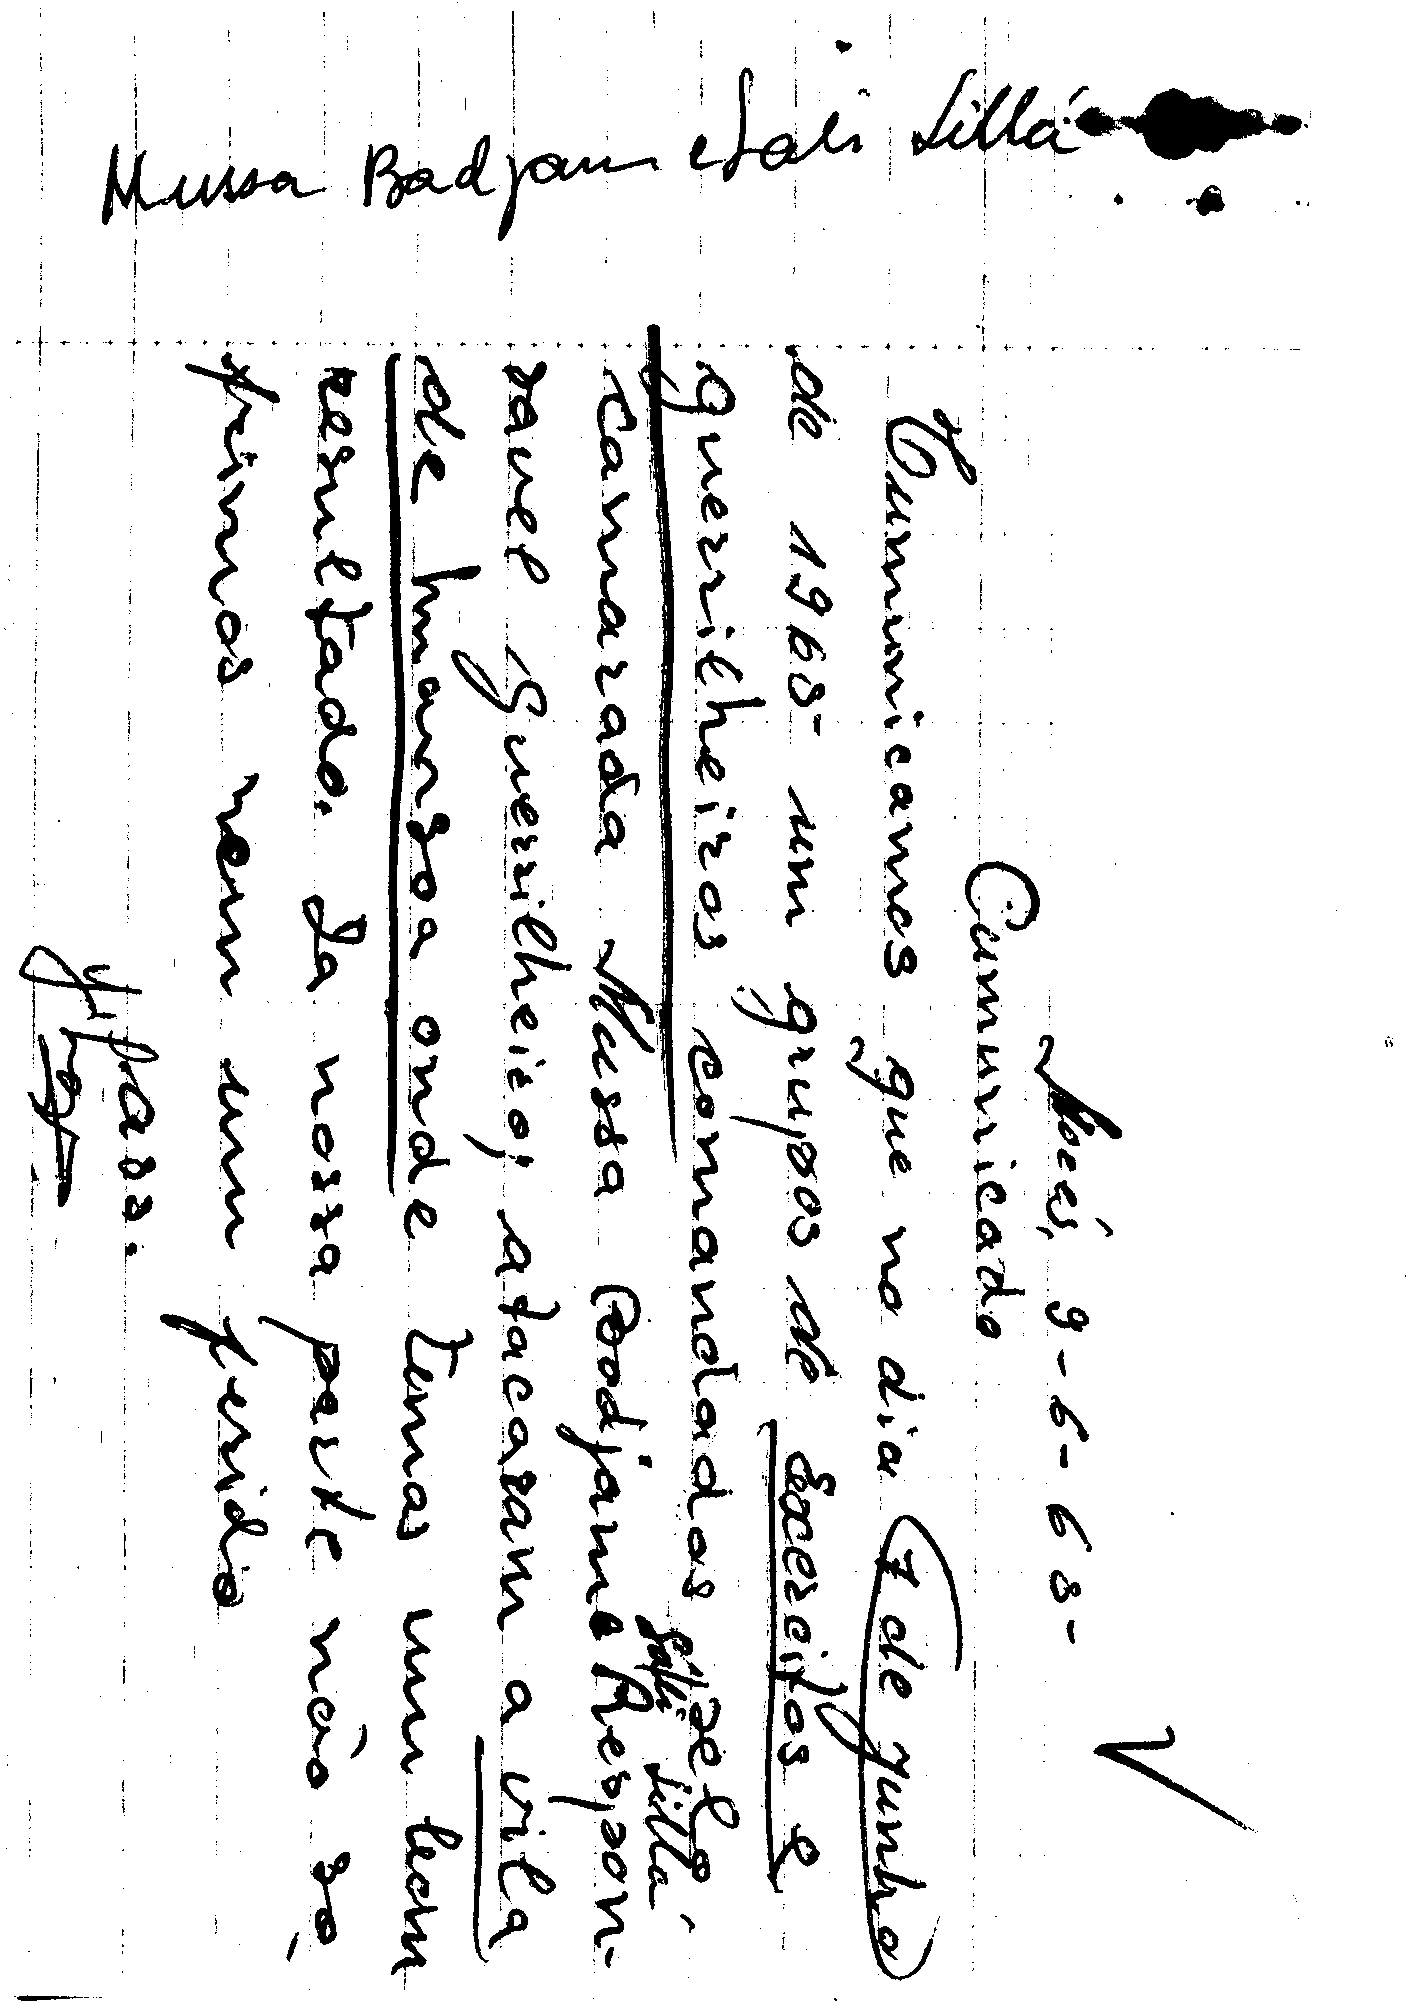 Mussa Badjam e Sali Sillá
Morés, 9-6-65-
Cumunicado
Cumunicamos que no dia 7 de junho
de 1965- um grupos de Exercitos e
guerrilheiros comandados pelo
Sali Sillá
Camarada Mussa Badjam Respon-
savel Guerrilheiro, atacaram a vila
de Mansoa onde temos um bom
resultado. Da nossa parte nós so
frimos nem um ferido